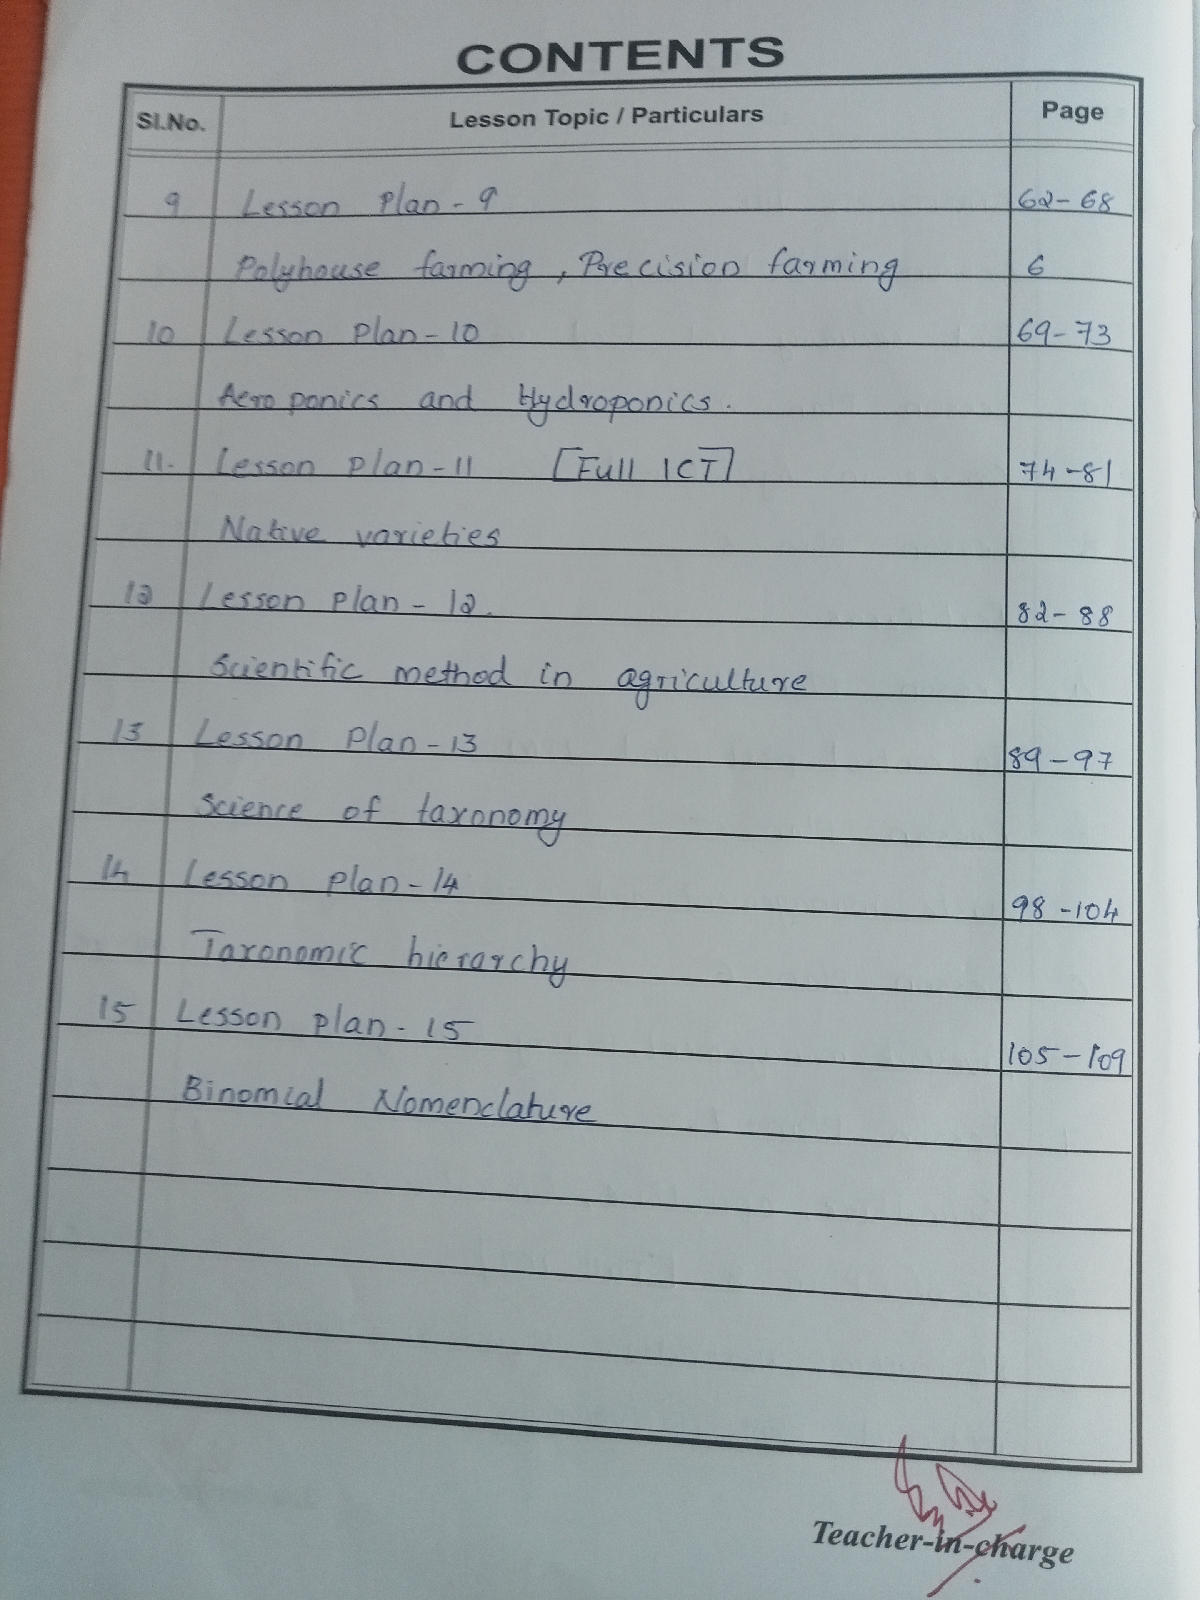 CONTENTS
Sl.No. Lesson Topic / Particulars Page
9 Lesson Plan - 9 62-68
Polyhouse farming, Precision farming 6
10 Lesson Plan - 10 69-73
Aeroponics and Hydroponics.
11. Lesson Plan - 11 [Full ICT] 74-81
Native varieties
12 Lesson Plan - 12. 82-88
Scientific method in agriculture
13 Lesson Plan - 13 89-97
Science of taxonomy
14 Lesson Plan - 14 98-104
Taxonomic hierarchy
15 Lesson Plan - 15 105-109
Binomial Nomenclature
Teacher-in-charge